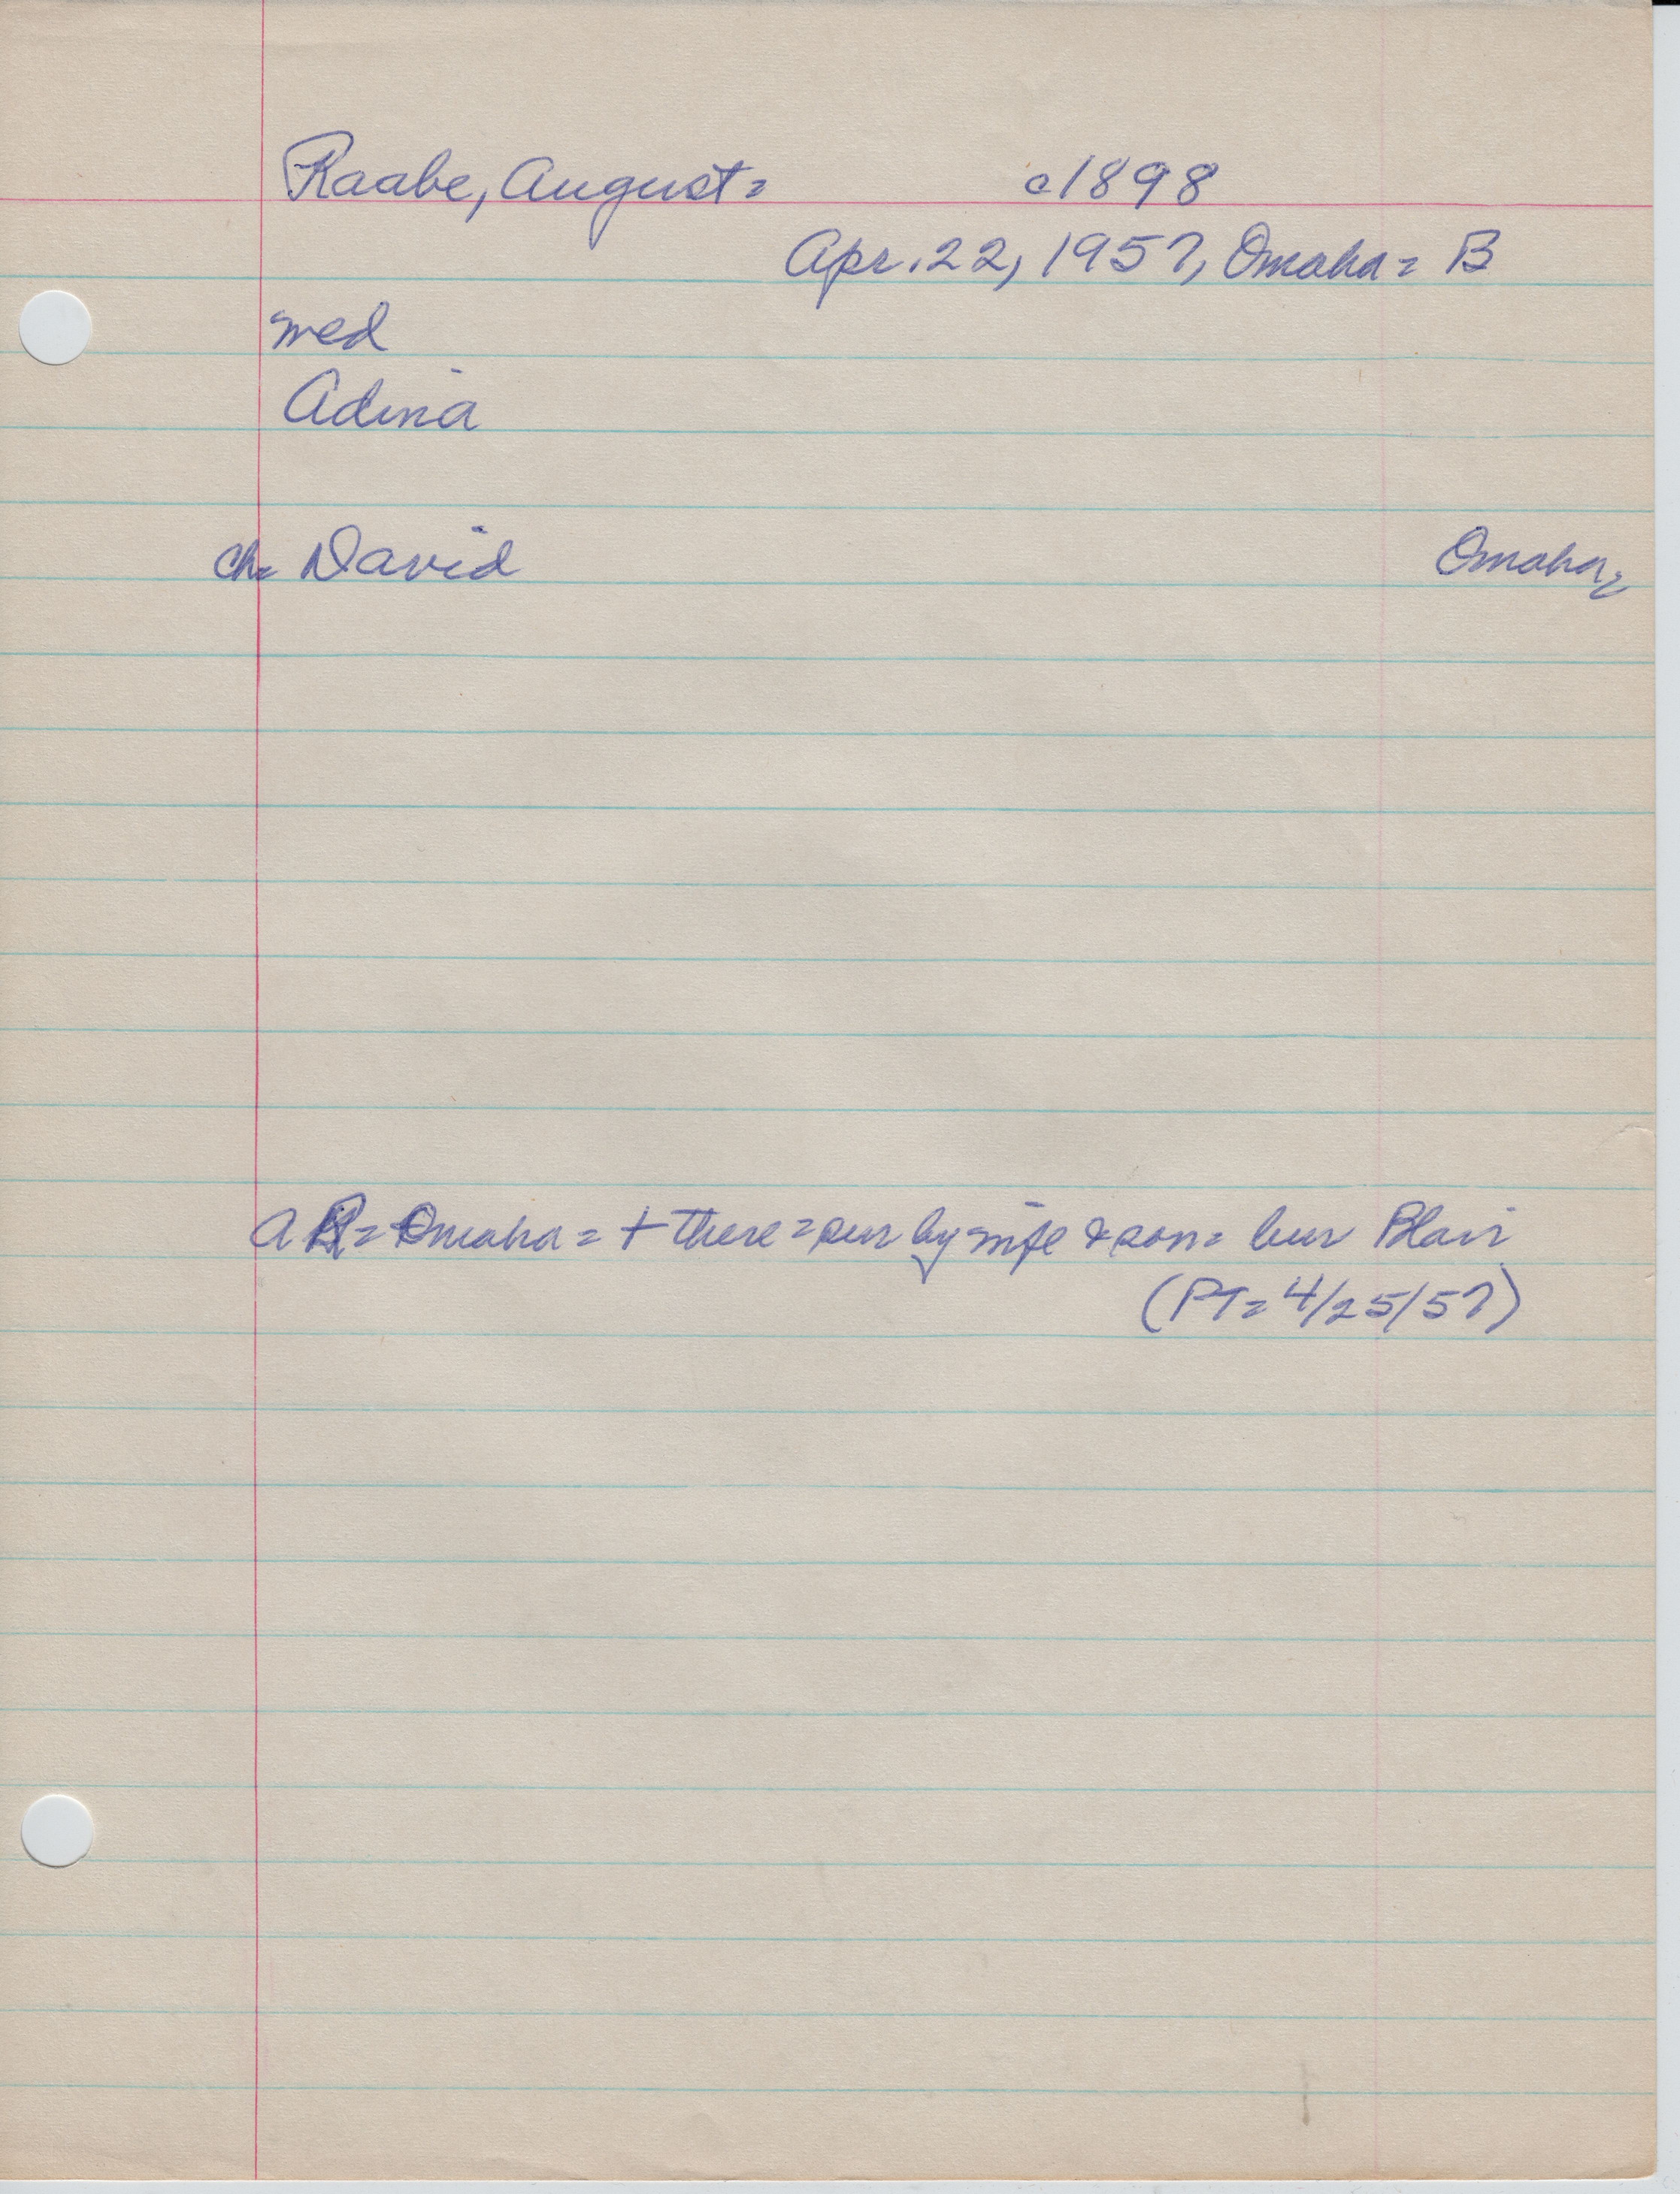 Raabe, August= c1898
Apr. 22, 1957, Omaha= B
wed
Adina
ch= David Omaha=
A R= Omaha= + there= sur by wife & son= bur Blair
(PT= 4/25/57)